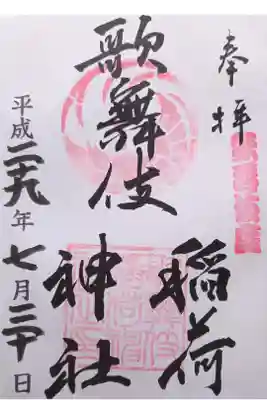 奉拝
歌舞伎
稲荷
神社
平成二十九年七月二十日